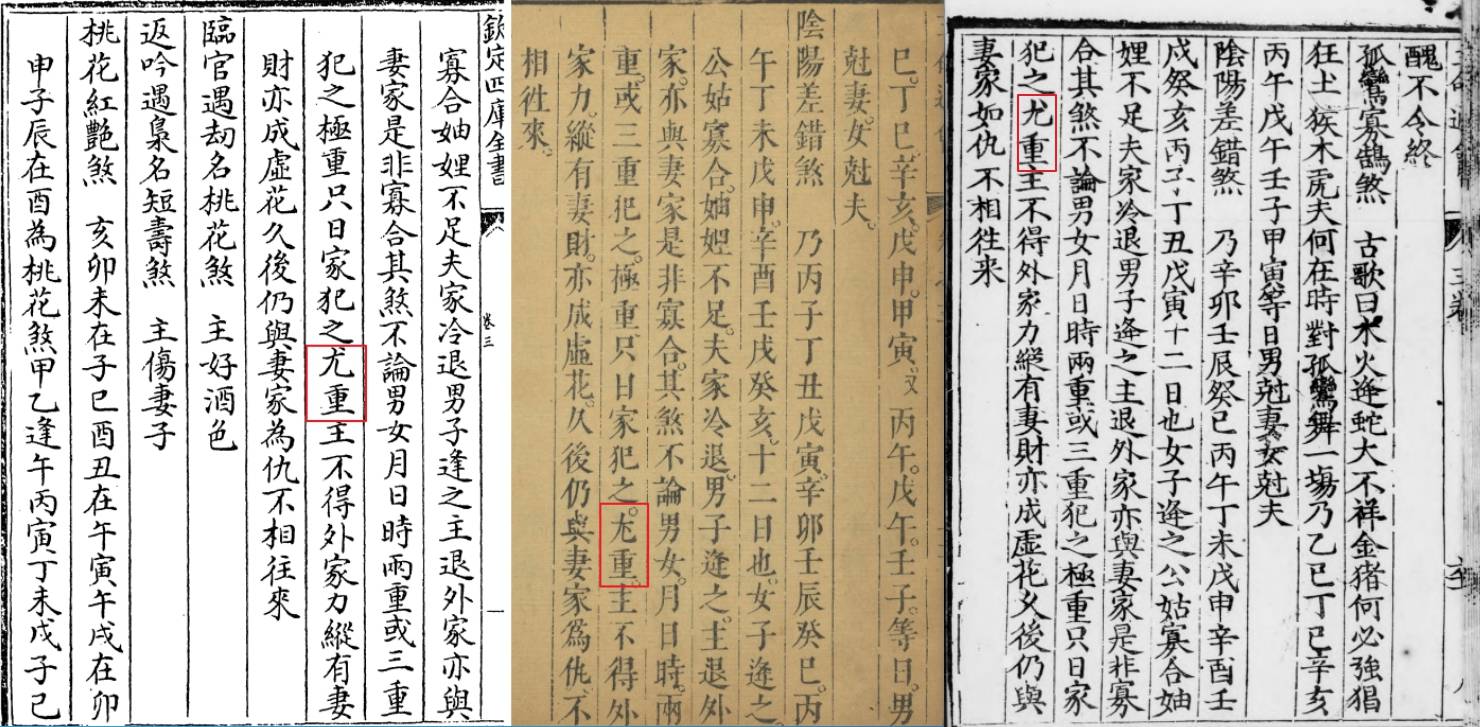 欽定四庫全書
卷三
寡合妯娌不足夫家冷退男子逢之主退外家亦與
妻家是非寡合其煞不論男女月日時兩重或三重
犯之極重只日家犯之尤重主不得外家力縱有妻
財亦成虛花久後仍與妻家為仇不相往來
臨官遇劫名桃花煞　主好酒色
返吟遇梟名短壽煞　主傷妻子
桃花紅艷煞　亥卯未在子巳酉丑在午寅午戌在卯
申子辰在酉為桃花煞甲乙逢午丙寅丁未戊子己
巳。丁巳。辛亥。戊申。甲寅。又丙午。戊午。壬子。等日。男
尅妻。女尅夫。
陰陽差錯煞　乃丙子丁丑戊寅。辛卯壬辰癸巳。丙
午丁未戊申。辛酉壬戌癸亥。十二日也。女子逢之。
公姑寡合。妯娌不足。夫家冷退。男子逢之。主退外
家。亦與妻家是非寡合。其煞不論男女。月日時。兩
重。或三重犯之。極重只日家犯之。尤重。主不得外
家力。縱有妻財。亦成虛花。久後仍與妻家爲仇。不
相徃來。
三卷
醜不令終
孤鸞寡鵠煞　古歌曰木火逢蛇大不祥金猪何必強猖
狂土猴木虎夫何在時對孤鸞舞一塲乃乙巳丁巳辛亥
丙午戊午壬子甲寅等日男尅妻女尅夫
陰陽差錯煞　乃辛卯壬辰癸巳丙午丁未戊申辛酉壬
戌癸亥丙子丁丑戊寅十二日也女子逢之公姑寡合妯
娌不足夫家冷退男子逢之主退外家亦與妻家是非寡
合其煞不論男女月日時兩重或三重犯之極重只日家
犯之尤重主不得外家力縱有妻財亦成虛花久後仍與
妻家如仇不相徃來